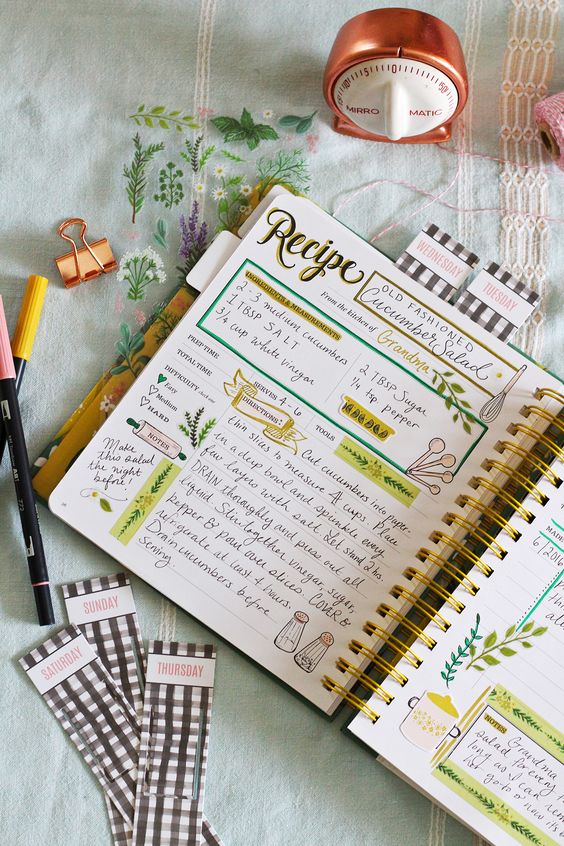 MIRRO MATIC
0
5
10
50
WEDNESDAY
TUESDAY
Recipe
OLD FASHIONED
Cucumber Salad
From the kitchen of Grandma
INGREDIENTS & MEASUREMENTS
2-3 medium cucumbers
1 TBSP SALT
3/4 cup white vinegar
2 TBSP Sugar
1/4 tsp pepper
PREP TIME
TOTAL TIME
DIFFICULTY
Easy
Medium
HARD
SERVES 4-6
DIRECTIONS:
TOOLS
Cut cucumbers into
thin slices to measure 4 cups. Place
in a deep bowl and sprinkle every
few layers with salt. Let stand 2 hrs.
DRAIN thoroughly and press out all
liquid. Stir together vinegar, sugar,
pepper & pour over slices. COVER &
refrigerate at least 4 hours.
Drain cucumbers before
serving.
NOTES
Make
this salad
the night
before!
SUNDAY
SATURDAY
THURSDAY
MADE
6/2016
this
NOTES:
Grandma
salad for every
long as I can